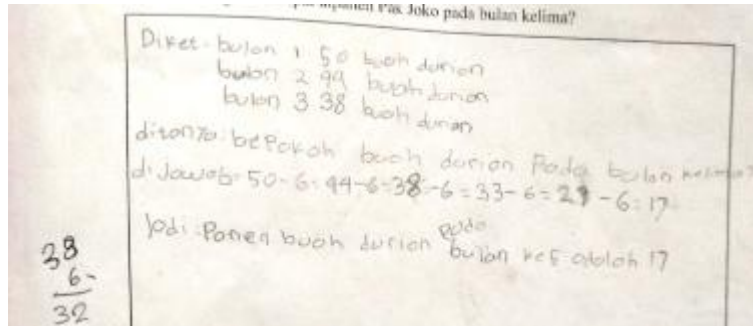 Pak Joko pada bulan kelima?
Diket: bulan 1 50 buah durian
bulan 2 44 buah durian
bulan 3 38 buah durian
ditanya: bePakah buah durian Pada bulan kelima?
diJawab: 50-6=44-6=38-6=33-6=29-6=17
Jadi Panen buah durian pada bulan ke5 adalah 17
38
6-
32